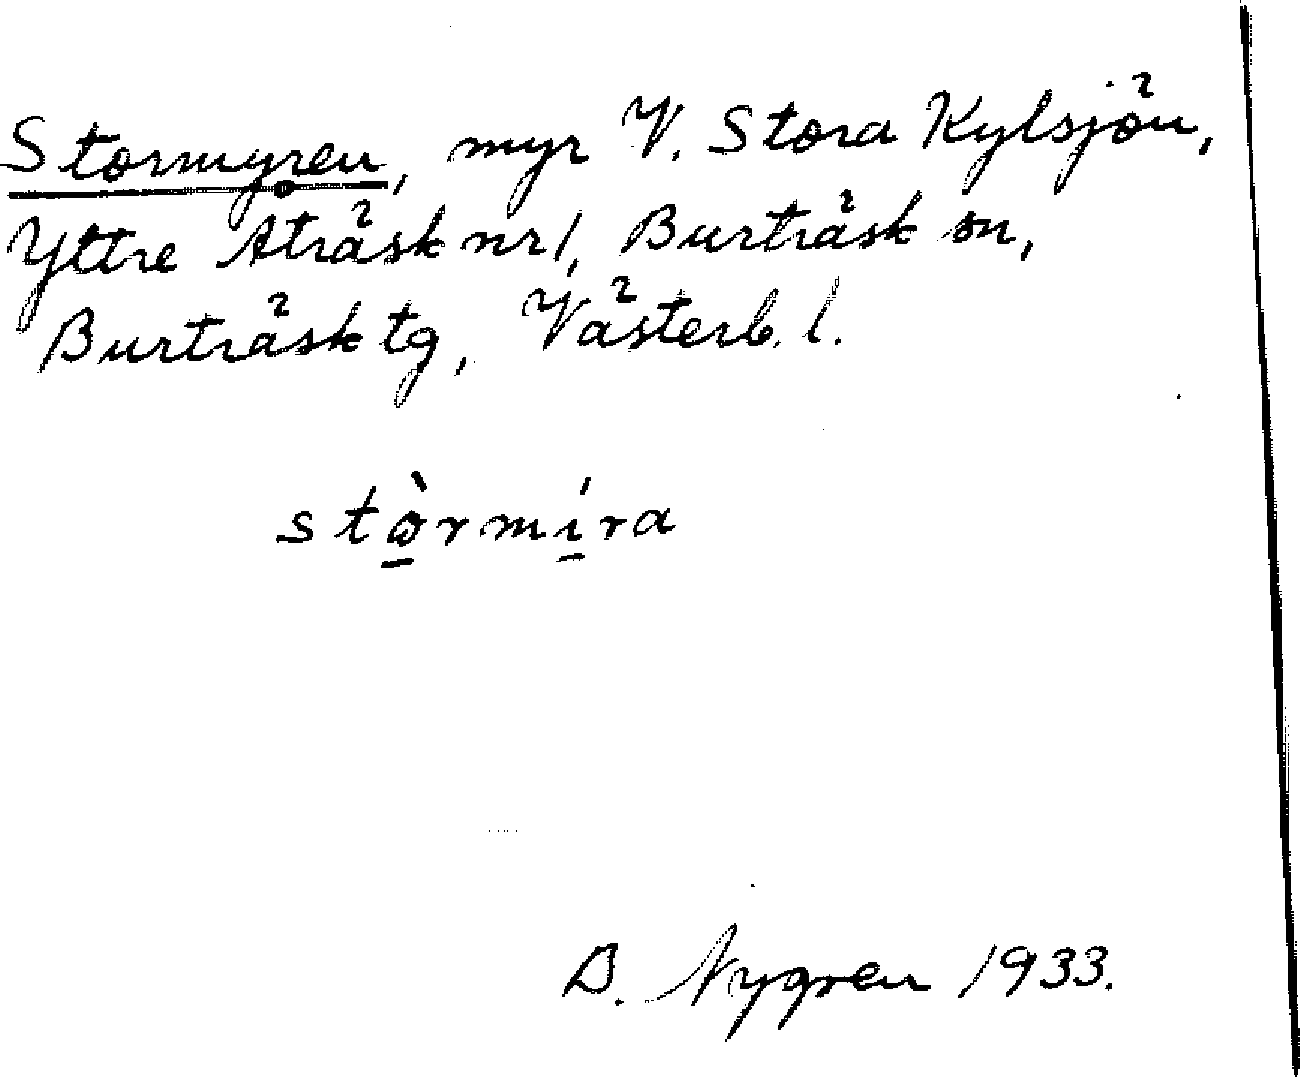 Stormyren, myr V. Stora Kylsjön,
Yttre Åträsk nr 1, Burträsk sn,
Burträsk tg, Västerb. l.
stòrmíra
B. Nygren 1933.